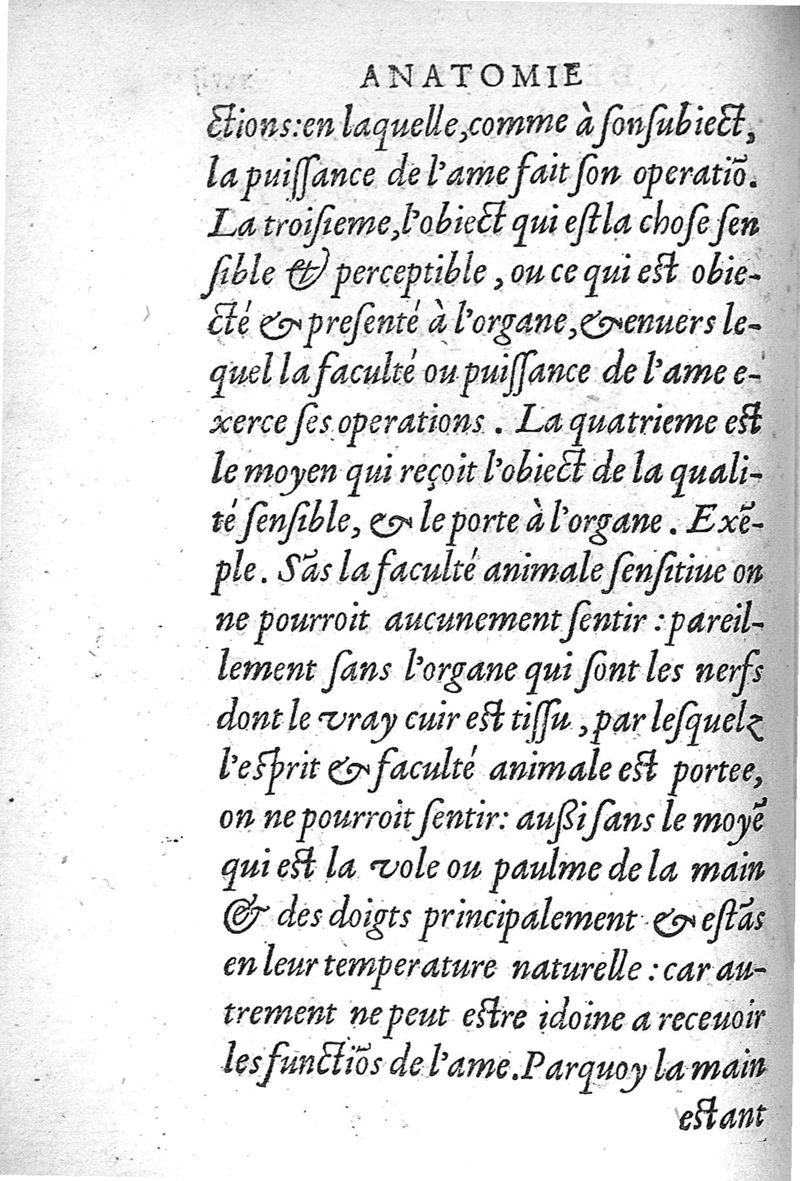 ANATOMIE
ctions:en laquelle,comme à ſonſubiect,
la puiſſance de l'ame fait ſon operatiõ.
La troiſieme,l'obiect qui eſt la choſe ſen
ſible & perceptible , ou ce qui est obie-
cté & preſenté à l'organe,& enuers le-
quel la faculté ou puiſſance de l'ame e-
xerce ſes operations . La quatrieme est
le moyen qui reçoit l'obiect de la quali-
té ſenſible, & le porte à l'organe . Exẽ-
ple . Sãs la faculté animale ſenſitiue on
ne pourroit aucunement ſentir : pareil-
lement ſans l'organe qui ſont les nerfs
dont le vray cuir est tiſſu , par leſquelz
l'esprit & faculté animale est portee,
on ne pourroit ſentir: außi ſans le moyẽ
qui est la vole ou paulme de la main
& des doigts principalement & eſtãs
en leur temperature naturelle : car au-
trement ne peut estre idoine a receuoir
les functiõs de l'ame.Parquoy la main
estant